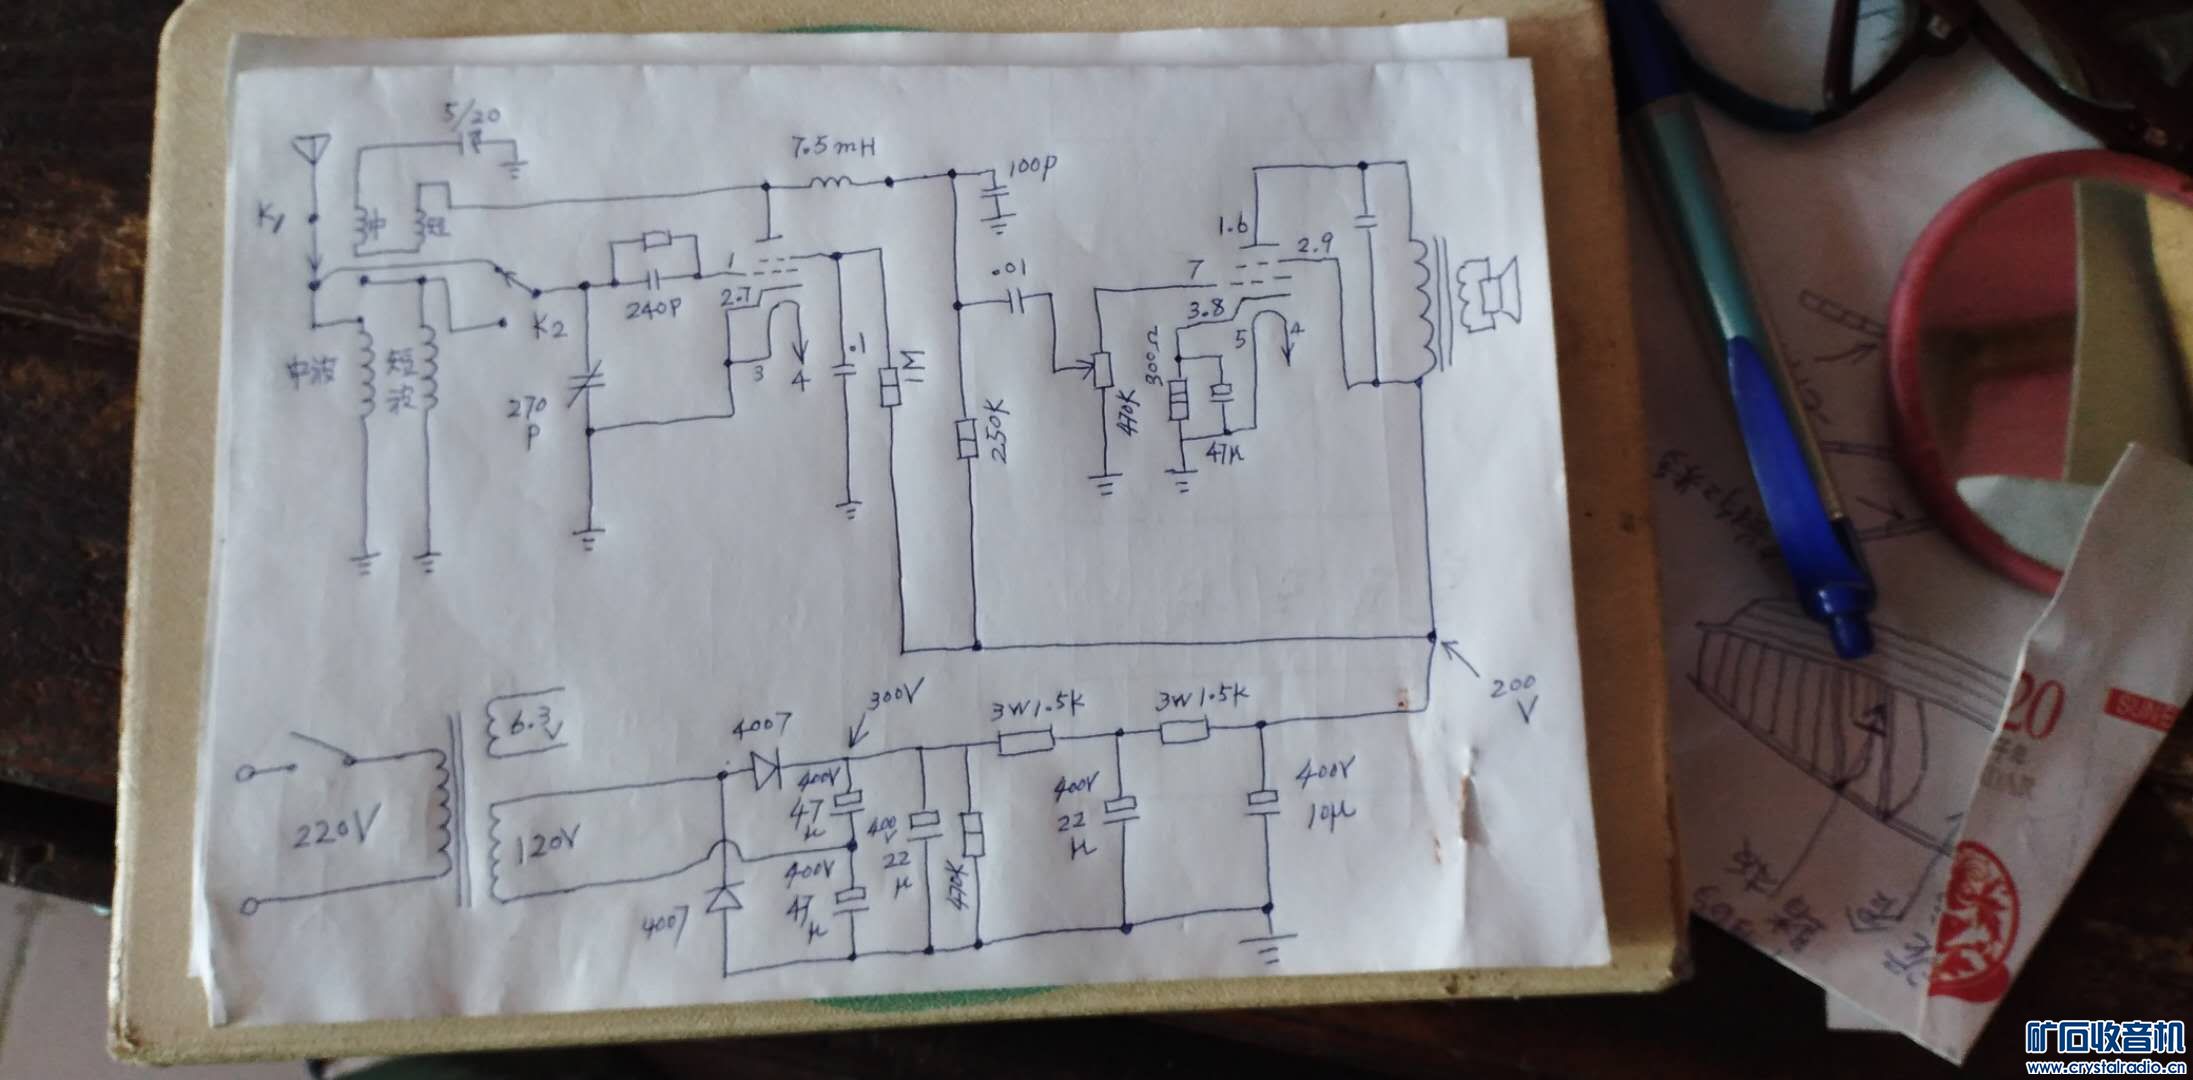 5/20
7.5mH
100P
K1
中
短
1.6
2.9
.01
1
7
240P
2.7
3.8
K2
300Ω
5
4
中波
短波
270
P
3
4
.1
1M
250K
470K
47μ
6.3V
4007
300V
3W1.5K
3W1.5K
200
V
220V
120V
400V
47
μ
400V
22
μ
470K
400V
22
μ
400V
10μ
400V
47
μ
4007
20
矿石收音机
www.crystalradio.cn